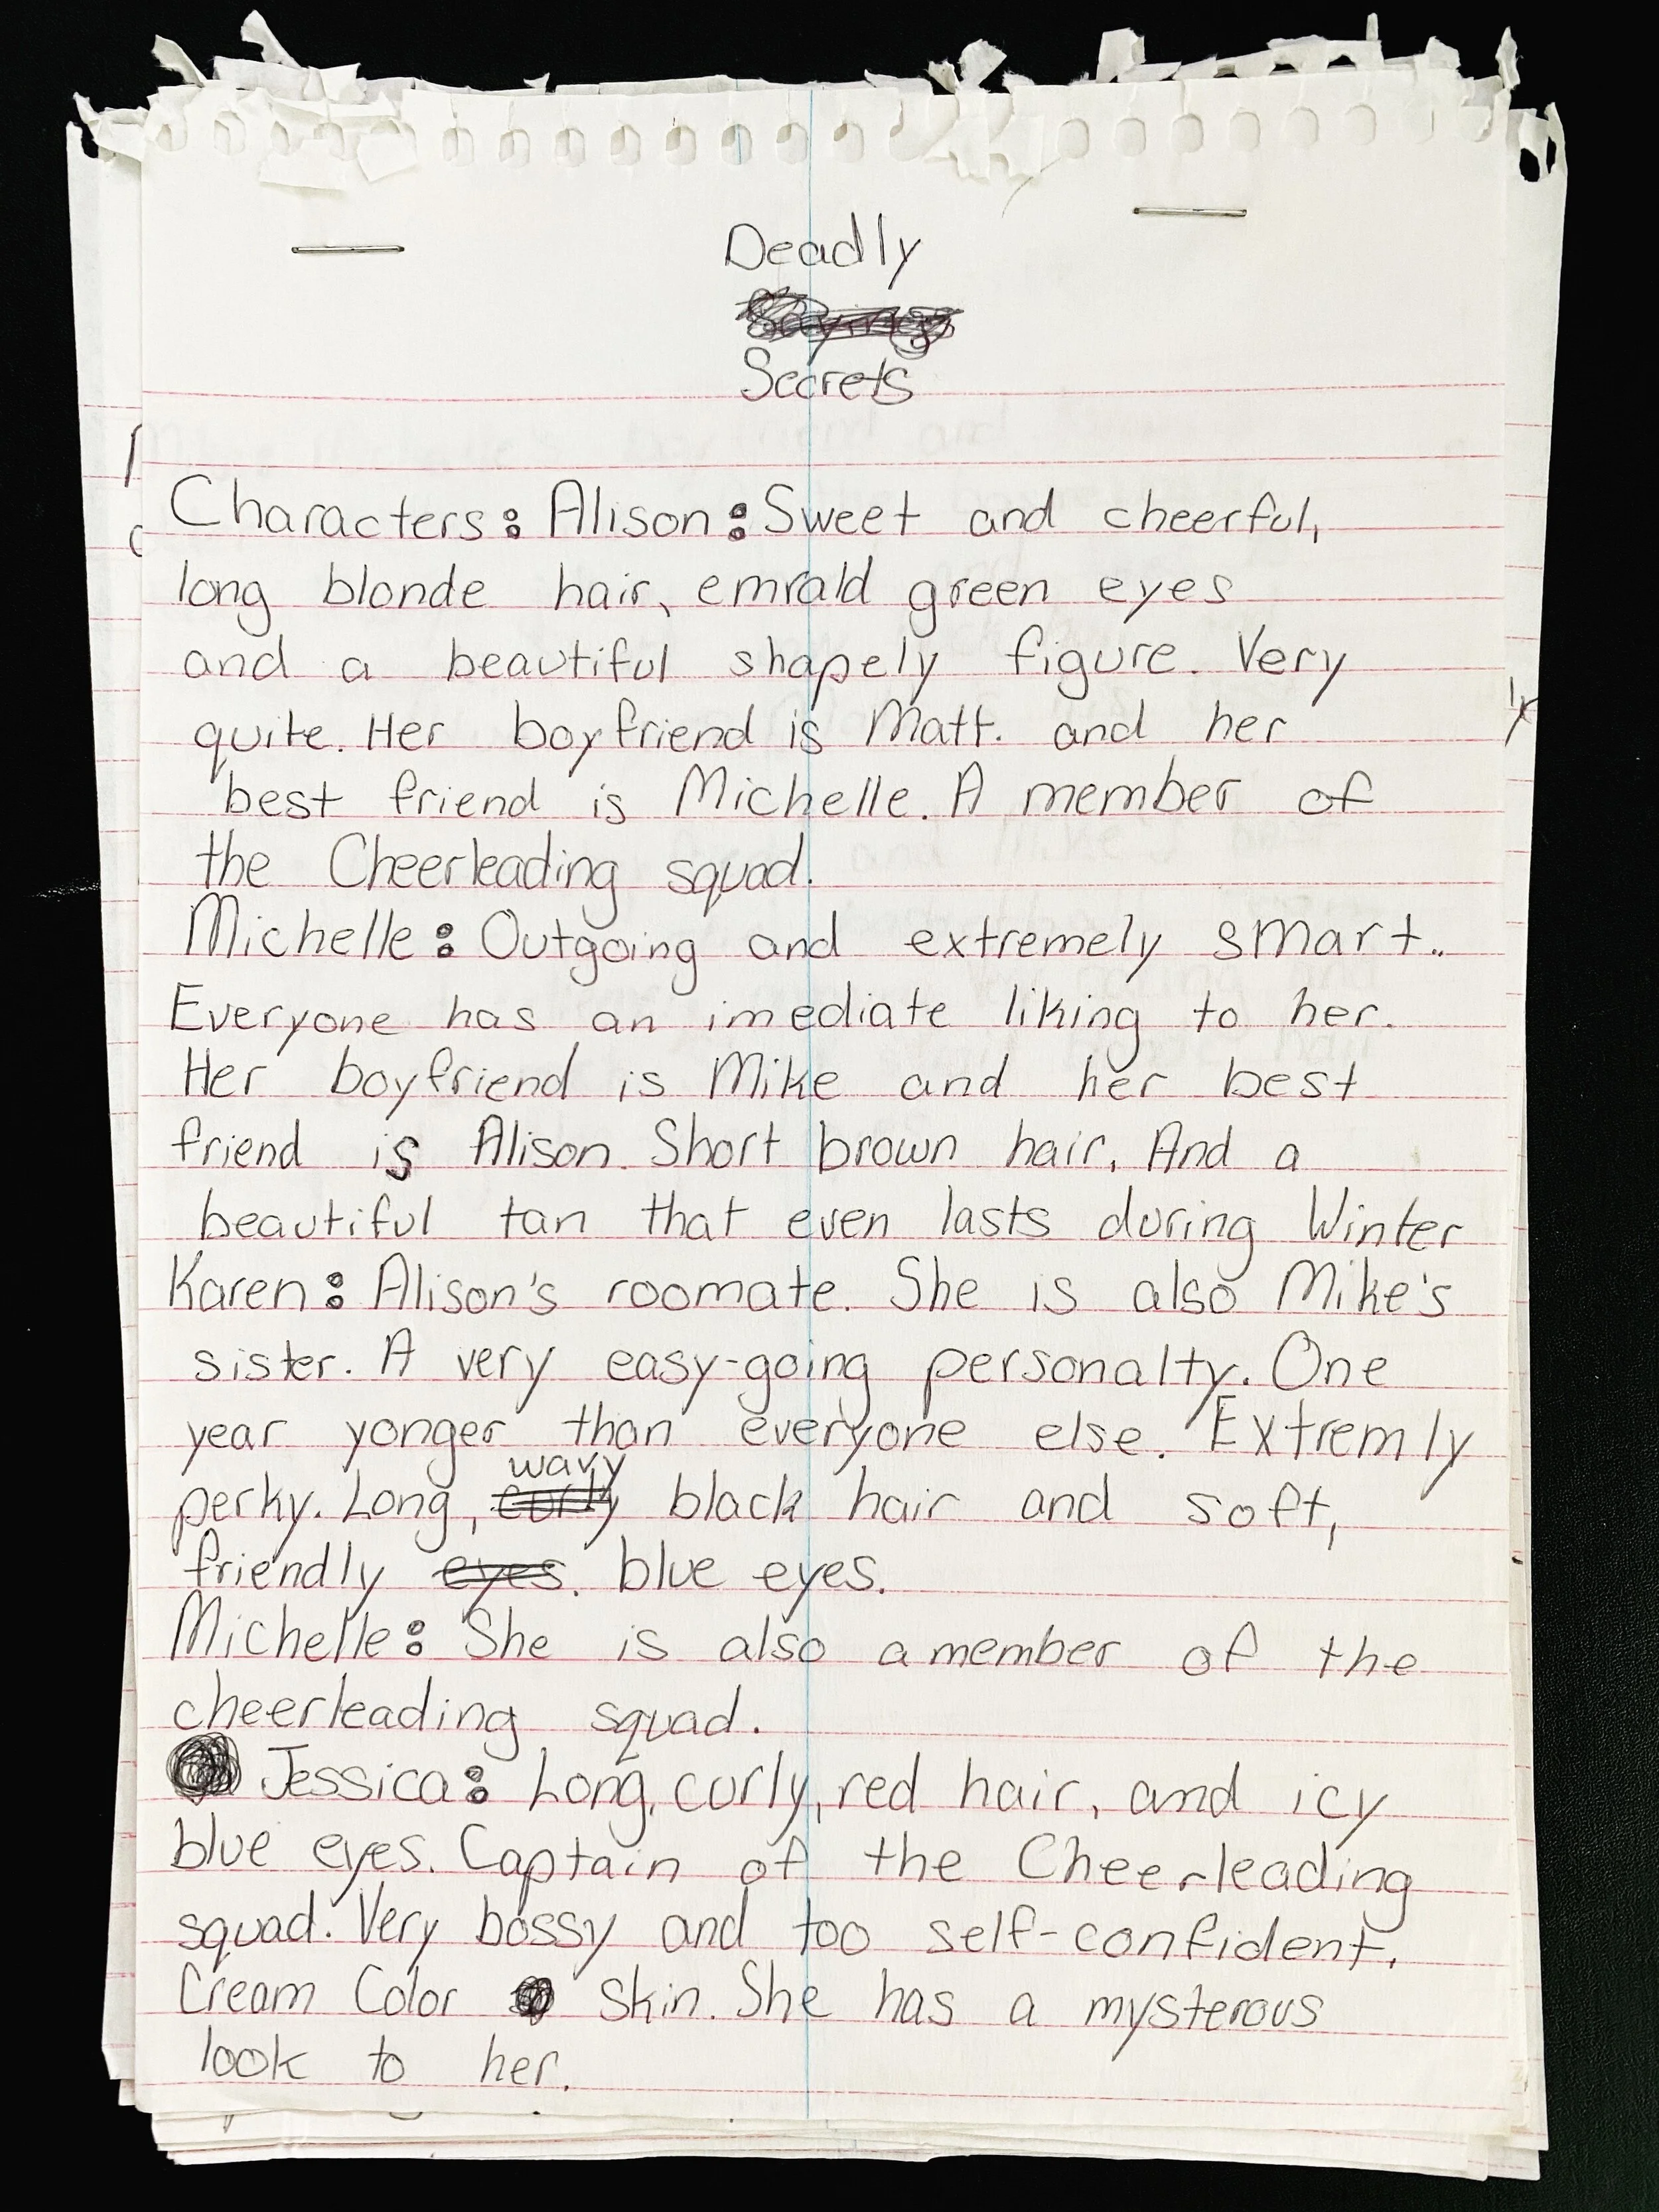 Deadly
Secrets
Characters: Alison: Sweet and cheerful,
long blonde hair, emrald green eyes
and a beautiful shapely figure. Very
quite. Her boyfriend is Matt. and her
best friend is Michelle. A member of
the Cheerleading squad.
Michelle: Outgoing and extremely smart..
Everyone has an imediate liking to her.
Her boyfriend is Mike and her best
friend is Alison. Short brown hair. And a
beautiful tan that even lasts during Winter
Karen: Alison's roomate. She is also Mike's
sister. A very easy-going personalty. One
year yonger than everyone else. Extremly
perky. Long, curly wavy black hair and soft,
friendly eyes. blue eyes.
Michelle: She is also a member of the
cheerleading squad.
Jessica: Long, curly, red hair, and icy
blue eyes. Captain of the Cheerleading
squad. Very bossy and too self-confident.
Cream Color skin. She has a mysterous
look to her.